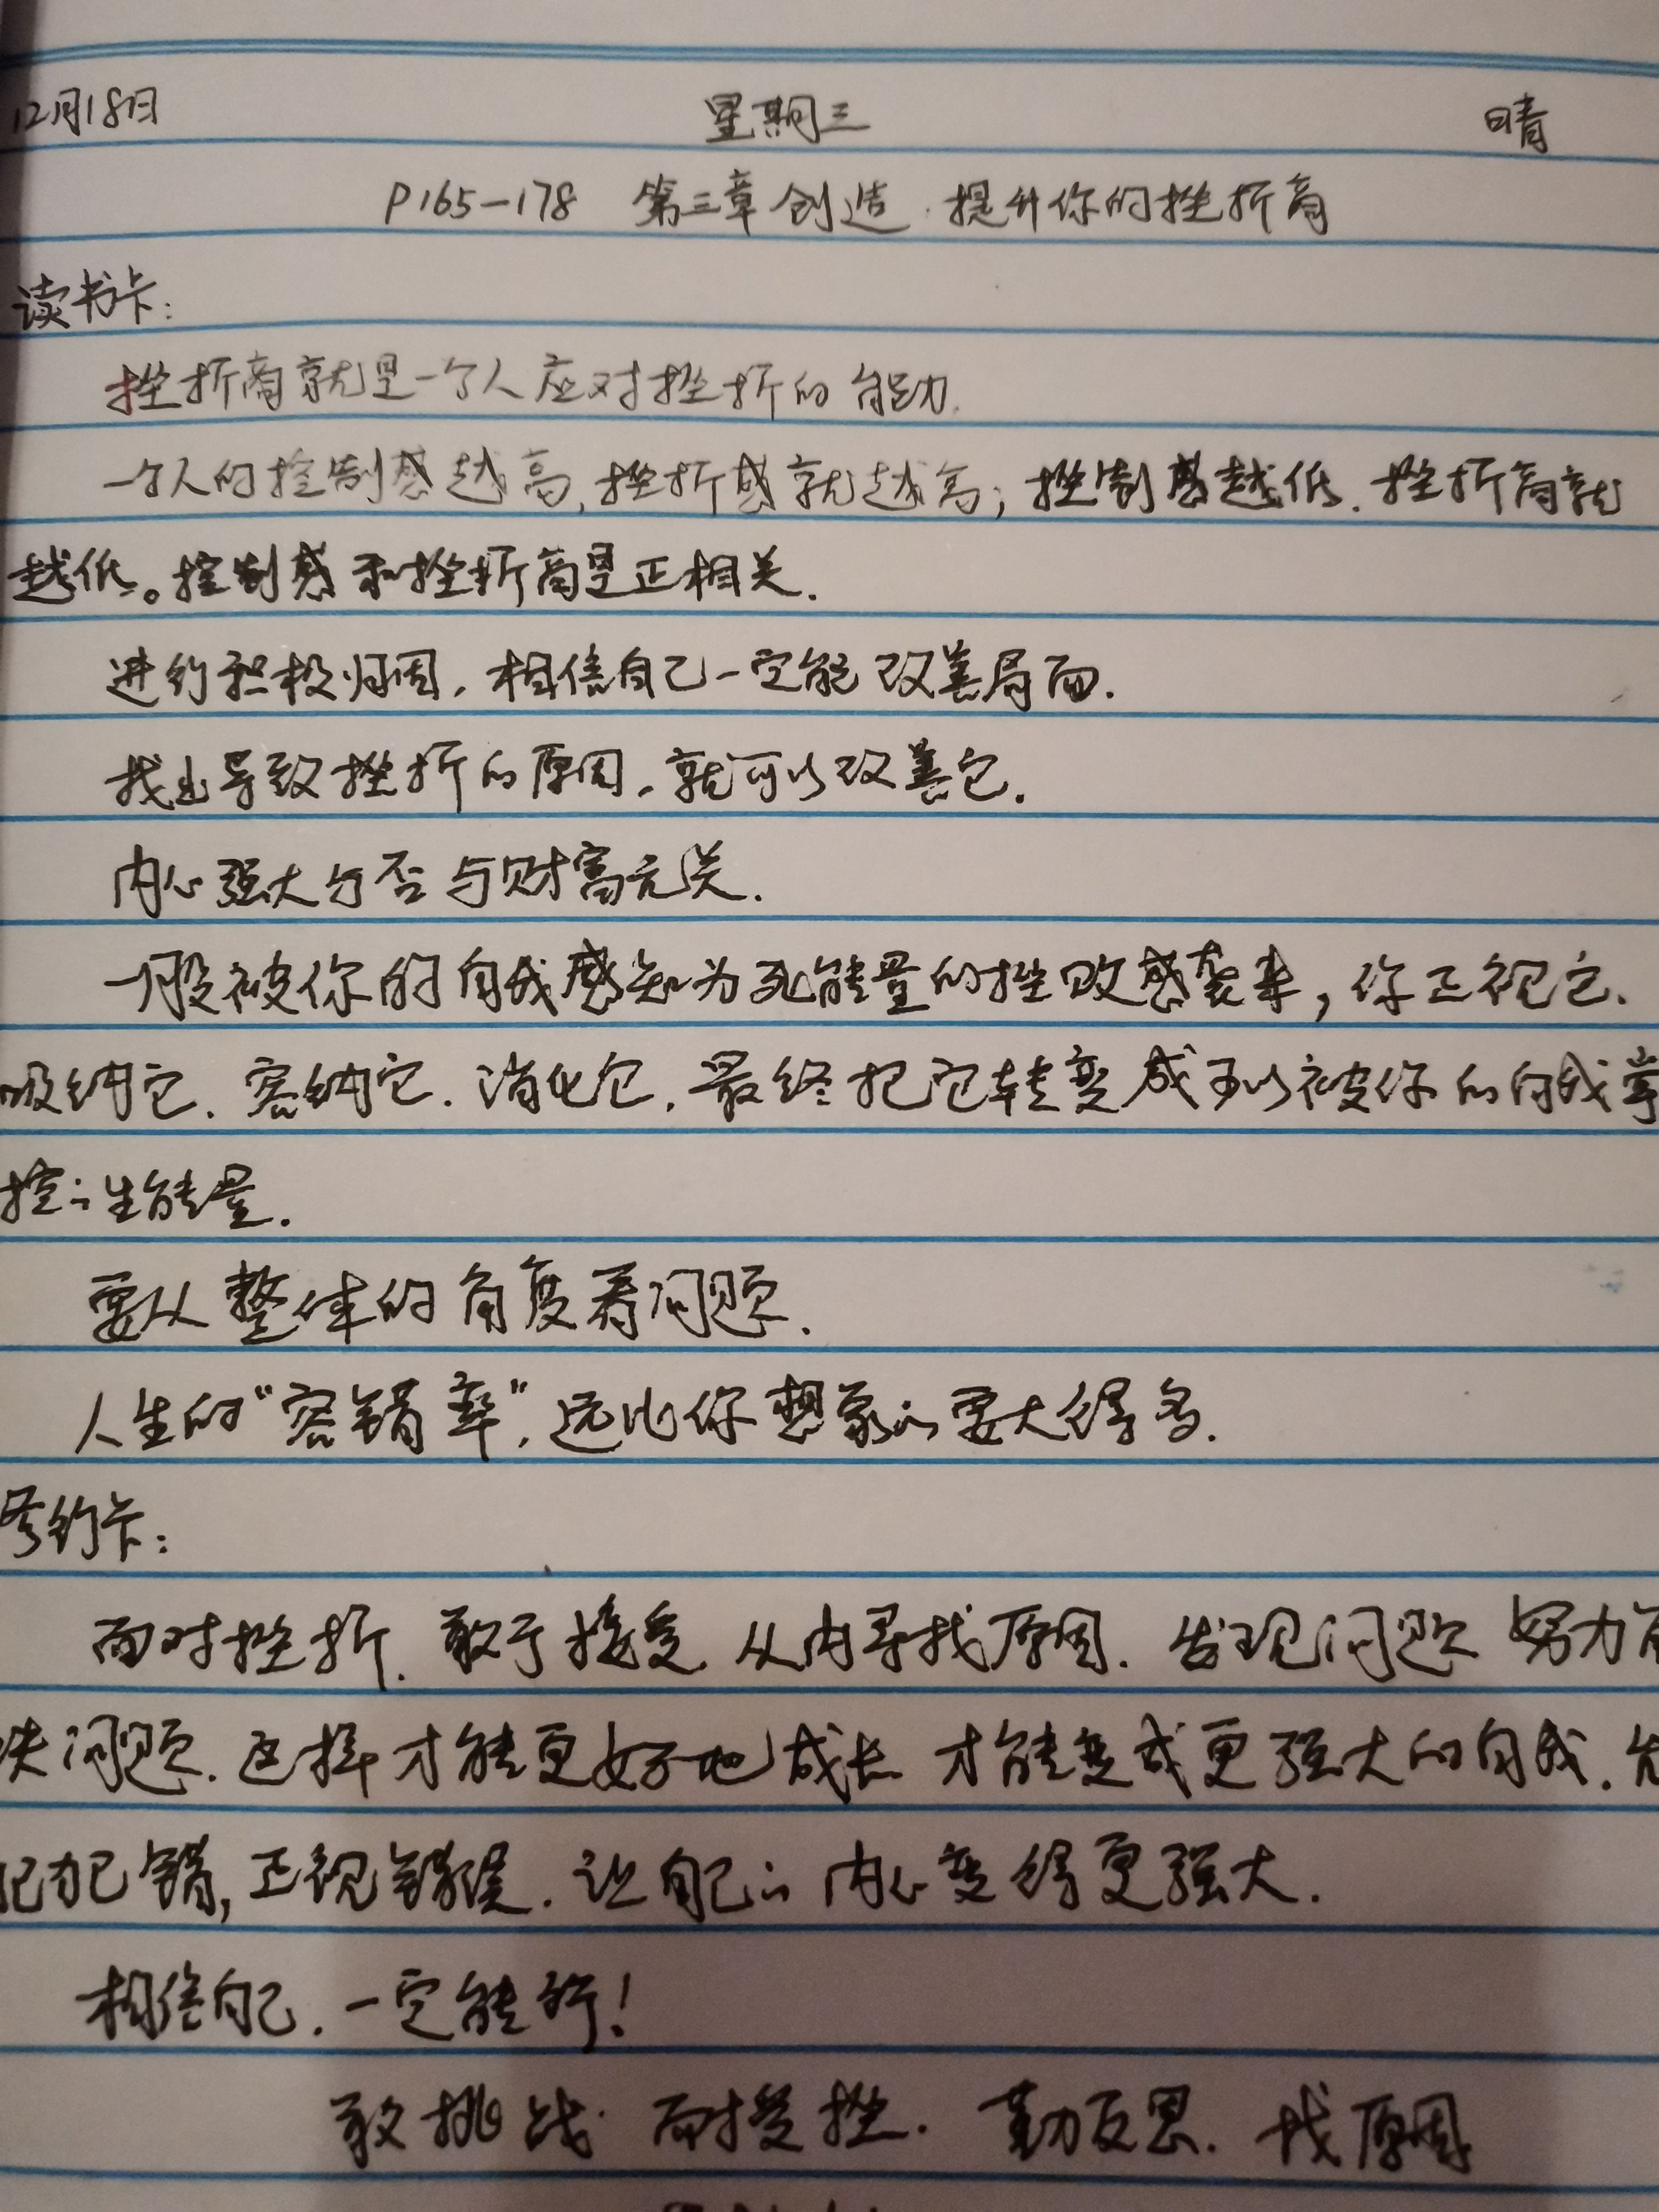 12月18日 星期三 晴
P165-178 第三章 创造.提升你的挫折商
读书卡:
挫折商就是一个人应对挫折的能力.
一个人的控制感越高,挫折感就越高;挫制感越低.挫折商就
越低。控制感和挫折商是正相关.
进行积极归因,相信自己一定能改善局面.
找出导致挫折的原因,就可以改善它.
内心强大与否与财富无关.
一股被你的自我感知为死能量的挫败感袭来,你正视它.
吸纳它.容纳它.消化它.最终把它转变成可以被你的自我掌
控的生能量.
要从整体的角度看问题.
人生的“容错率”,远比你想象的要大得多.
践行卡:
面对挫折.敢于接受 从内寻找原因.发现问题 努力
决问题.这样才能更好地成长 才能变成更强大的自我.允
犯错,正视错误.让自己的内心变得更强大.
相信自己.一定能行!
敢挑战.耐受挫.勤反思.找原因